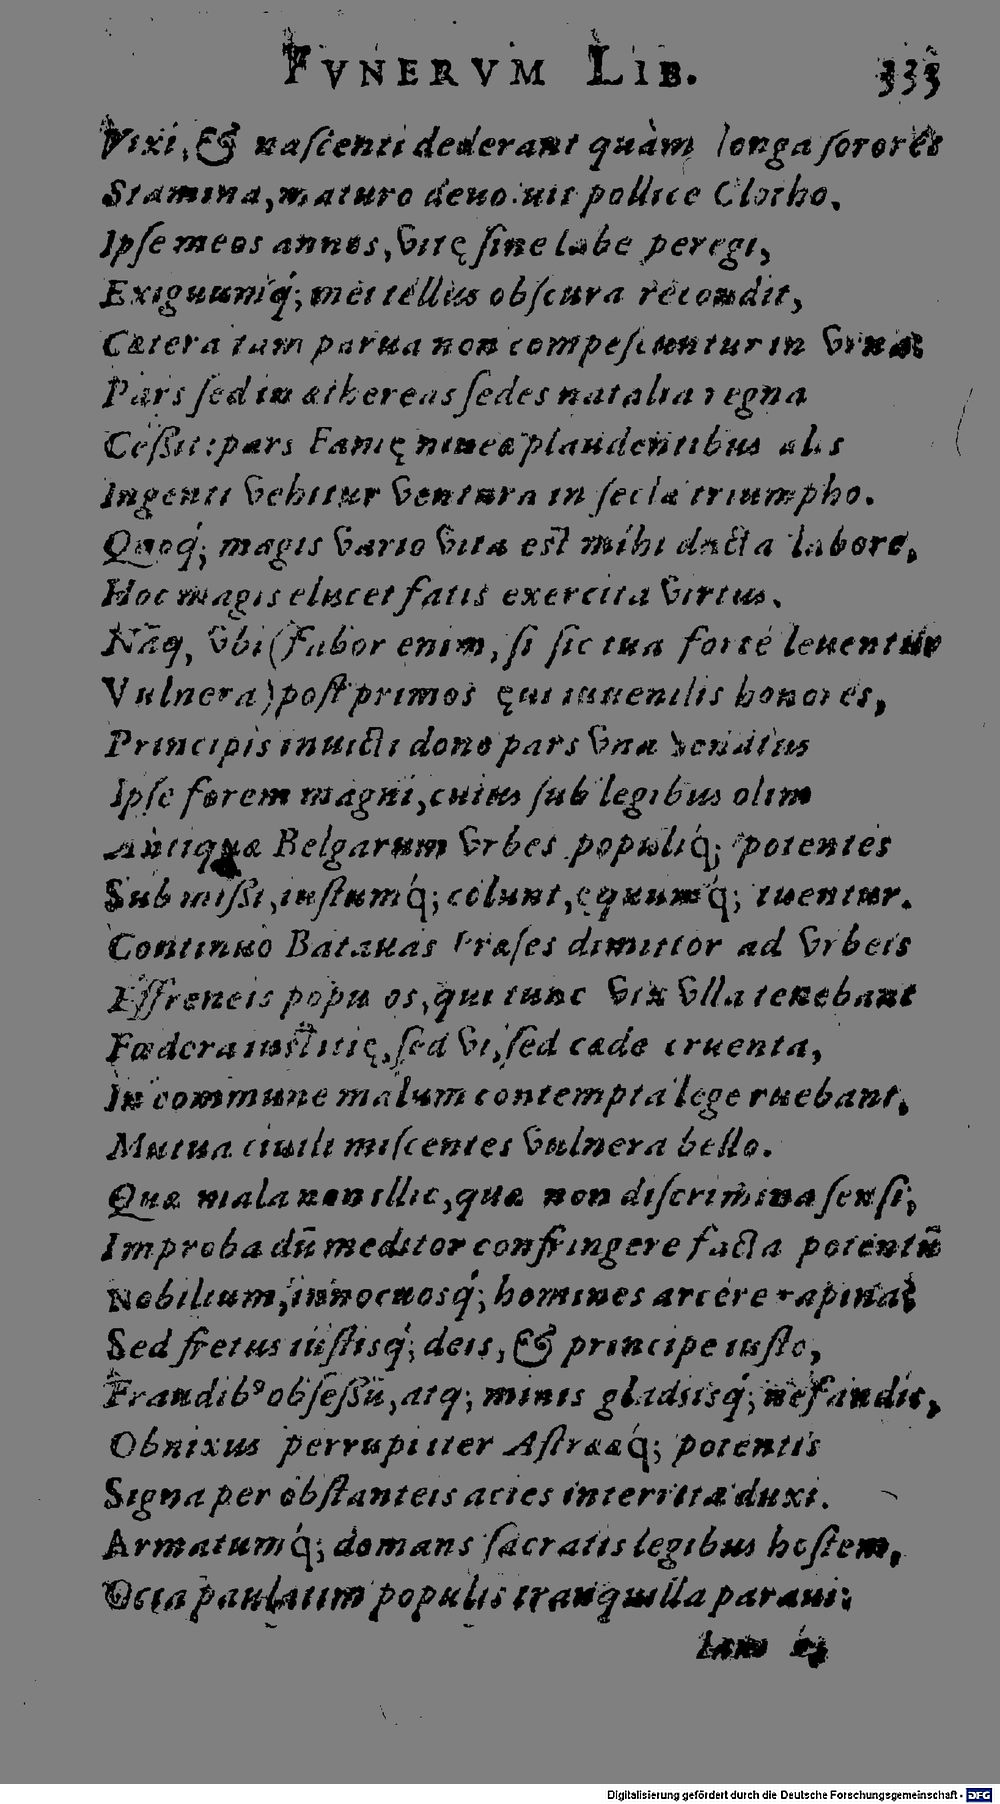 FVNERVM LIB. 333
Vixi, & nascenti dederant quàm longa sorores
Stamina, maturo deuo uit pollice Clotho.
Ipse meos annos, vitę sine labe peregi,
Exiguumq́; mei tellus obscura recondit,
Cætera tam parua non compescuntur in vrna:
Pars sed in æthereas sedes natalia regna
Ceßit: pars Famę niueæ plaudentibus alis
Ingenti vehitur ventura in secla triumpho.
Quoq́; magis vario vita est mihi ducta labore,
Hoc magis elucet fatis exercita virtus.
Nāq, vbi (fabor enim, si sic tua forte leuentur
Vulnera) post primos ęui iuuenilis honores,
Principis inuicti dono pars vna senatus
Ipse forem magni, cuius sub legibus olim
Antiquæ Belgarum vrbes populiq́; potentes
Submißi, iustumq́; colunt, ęquumq́; tuentur.
Continuo Batauas Præses dimittor ad vrbeis
Effreneis popu os, qui tunc vix vlla tenebant
Fœdera iustitię, sed vi, sed cæde cruenta,
In commune malum contempta lege ruebant,
Mutua ciuili miscentes vulnera bello.
Quæ mala non illic, quæ non discrimina sensi,
Improba dū meditor confringere facta potentū
Nobilium, innocuosq́; homines arcere rapinas
Sed fretus iustisq́; deis, & principe iusto,
Fraudibꝰ obseßū, atq; minis gladiisq́; nefandis,
Obnixus perrupi iter Astrææq́; potentis
Signa per obstanteis acies interritæ duxi.
Armatumq́; domans sacratis legibus hostem,
Ocia paulatim populis tranquilla paraui:
Digitalisierung gefördert durch die Deutsche Forschungsgemeinschaft - DFG